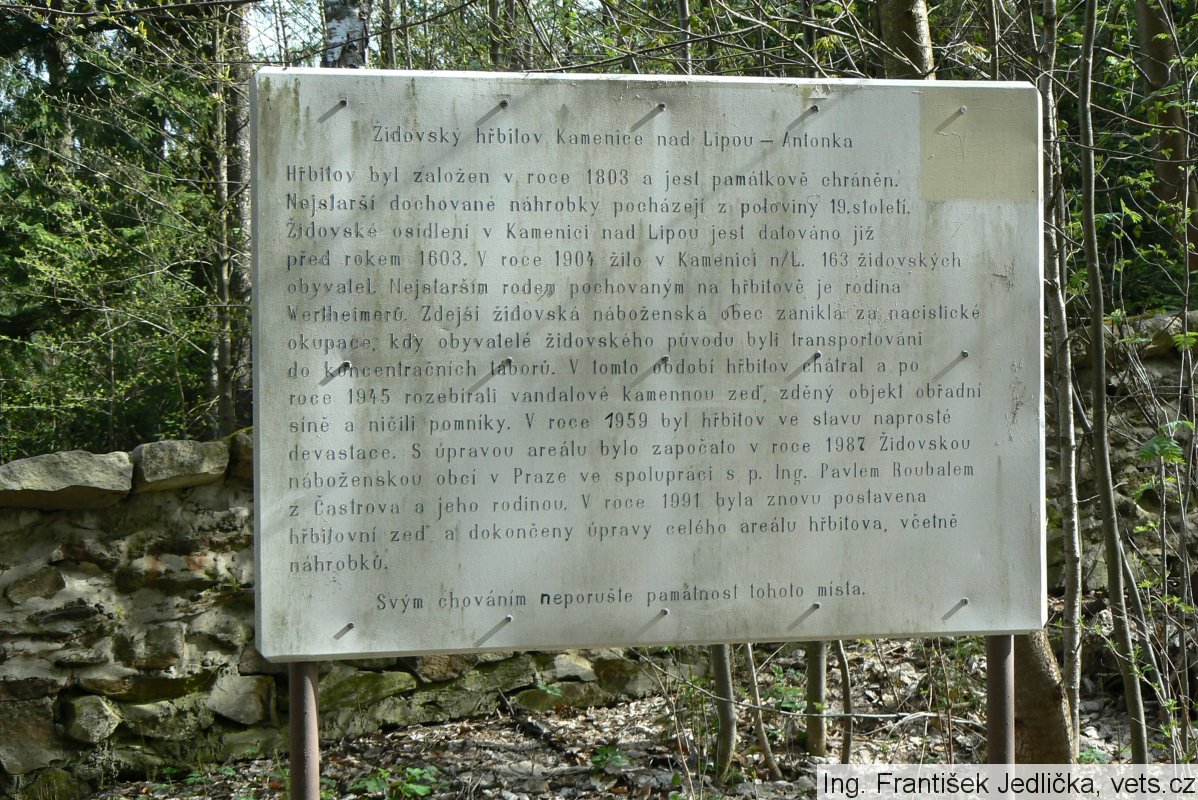 Židovský hřbitov Kamenice nad Lipou – Antonka
Hřbitov byl založen v roce 1803 a jest památkově chráněn.
Nejstarší dochované náhrobky pocházejí z poloviny 19.století.
Židovské osídlení v Kamenici nad Lipou jest datováno již
před rokem 1603. V roce 1904 žilo v Kamenici n/L. 163 židovských
obyvatel. Nejstarším rodem pochovaným na hřbitově je rodina
Wertheimerů. Zdejší židovská náboženská obec zanikla za nacistické
okupace, kdy obyvatelé židovského původu byli transportováni
do koncentračních táborů. V tomto období hřbitov chátral a po
roce 1945 rozebírali vandalové kamennou zeď, zděný objekt obřadní
síně a ničili pomníky. V roce 1959 byl hřbitov ve stavu naprosté
devastace. S úpravou areálu bylo započato v roce 1987 Židovskou
náboženskou obcí v Praze ve spolupráci s p. Ing. Pavlem Roubalem
z Častrova a jeho rodinou. V roce 1991 byla znovu postavena
hřbitovní zeď a dokončeny úpravy celého areálu hřbitova, včetně
náhrobků.
Svým chováním neporušte památnost tohoto místa.
Ing. František Jedlička, vets.cz